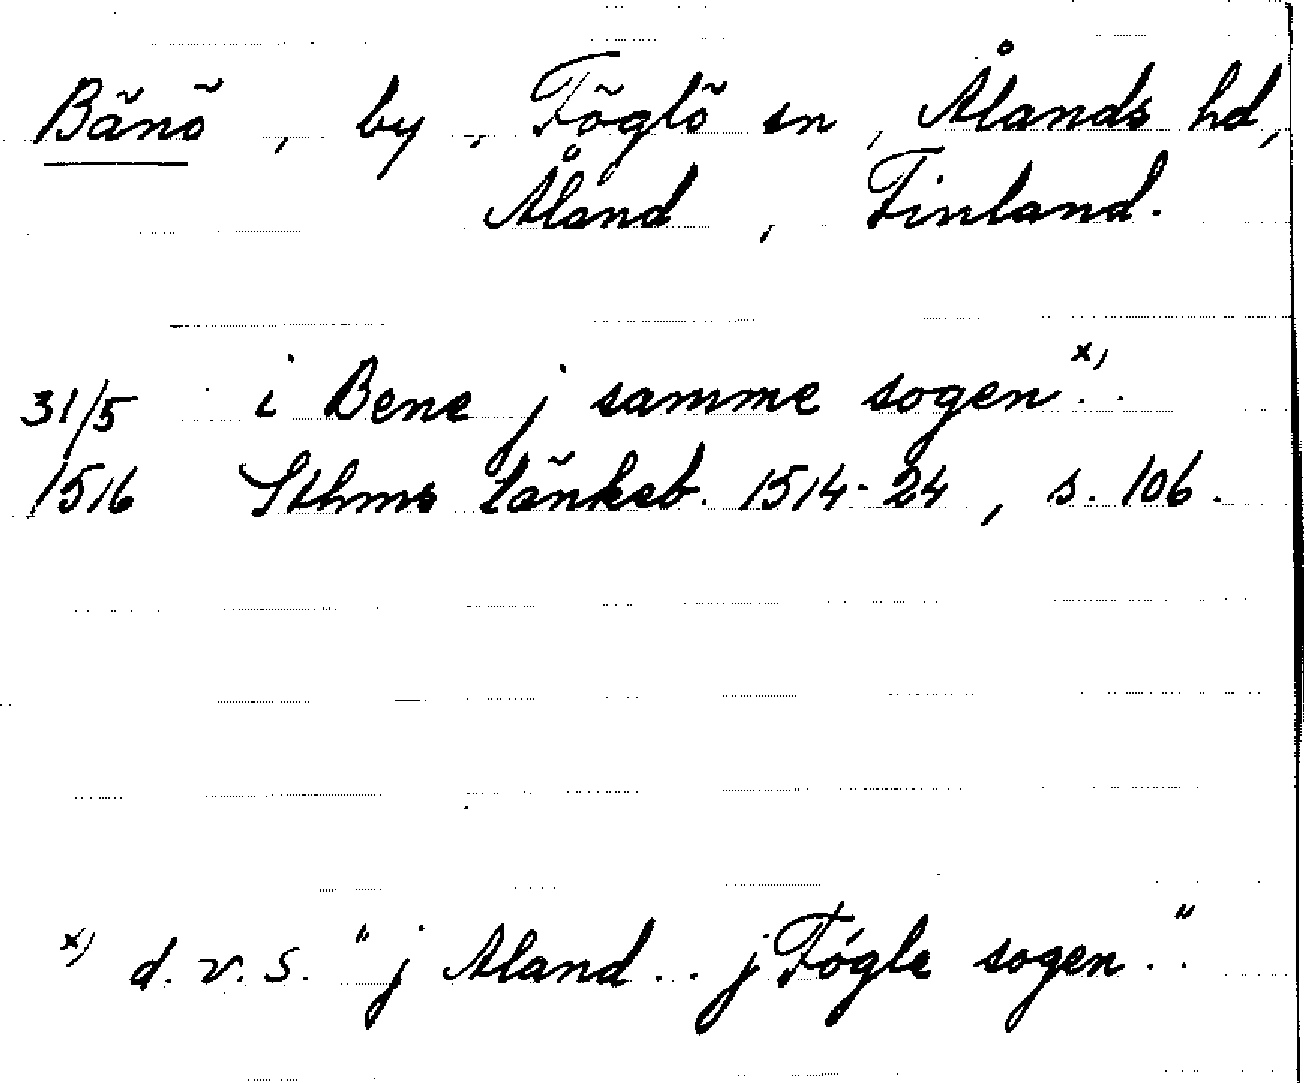 Bänö, by, Föglö sn, Ålands hd,
Åland, Finland.
31/5 i Bene j samme sogen x) ..
1516 Sthms tänkeb. 1514-24, s. 106.
x) d.v.s. "j Aland .. j Fógle sogen .."